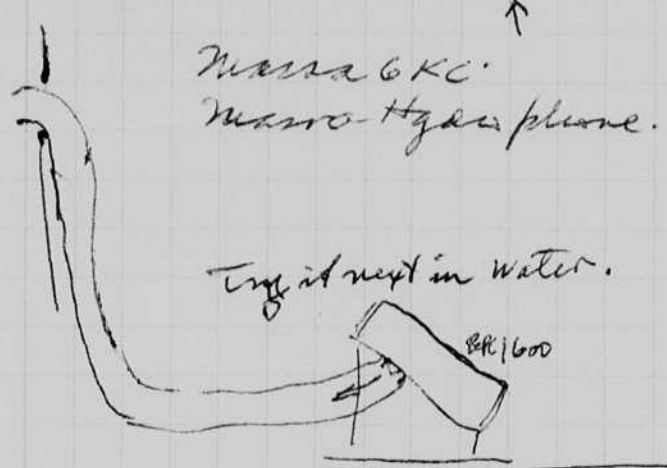 Massa 6 KC.
Massa-Hydrophone.
Try it next in water.
1600